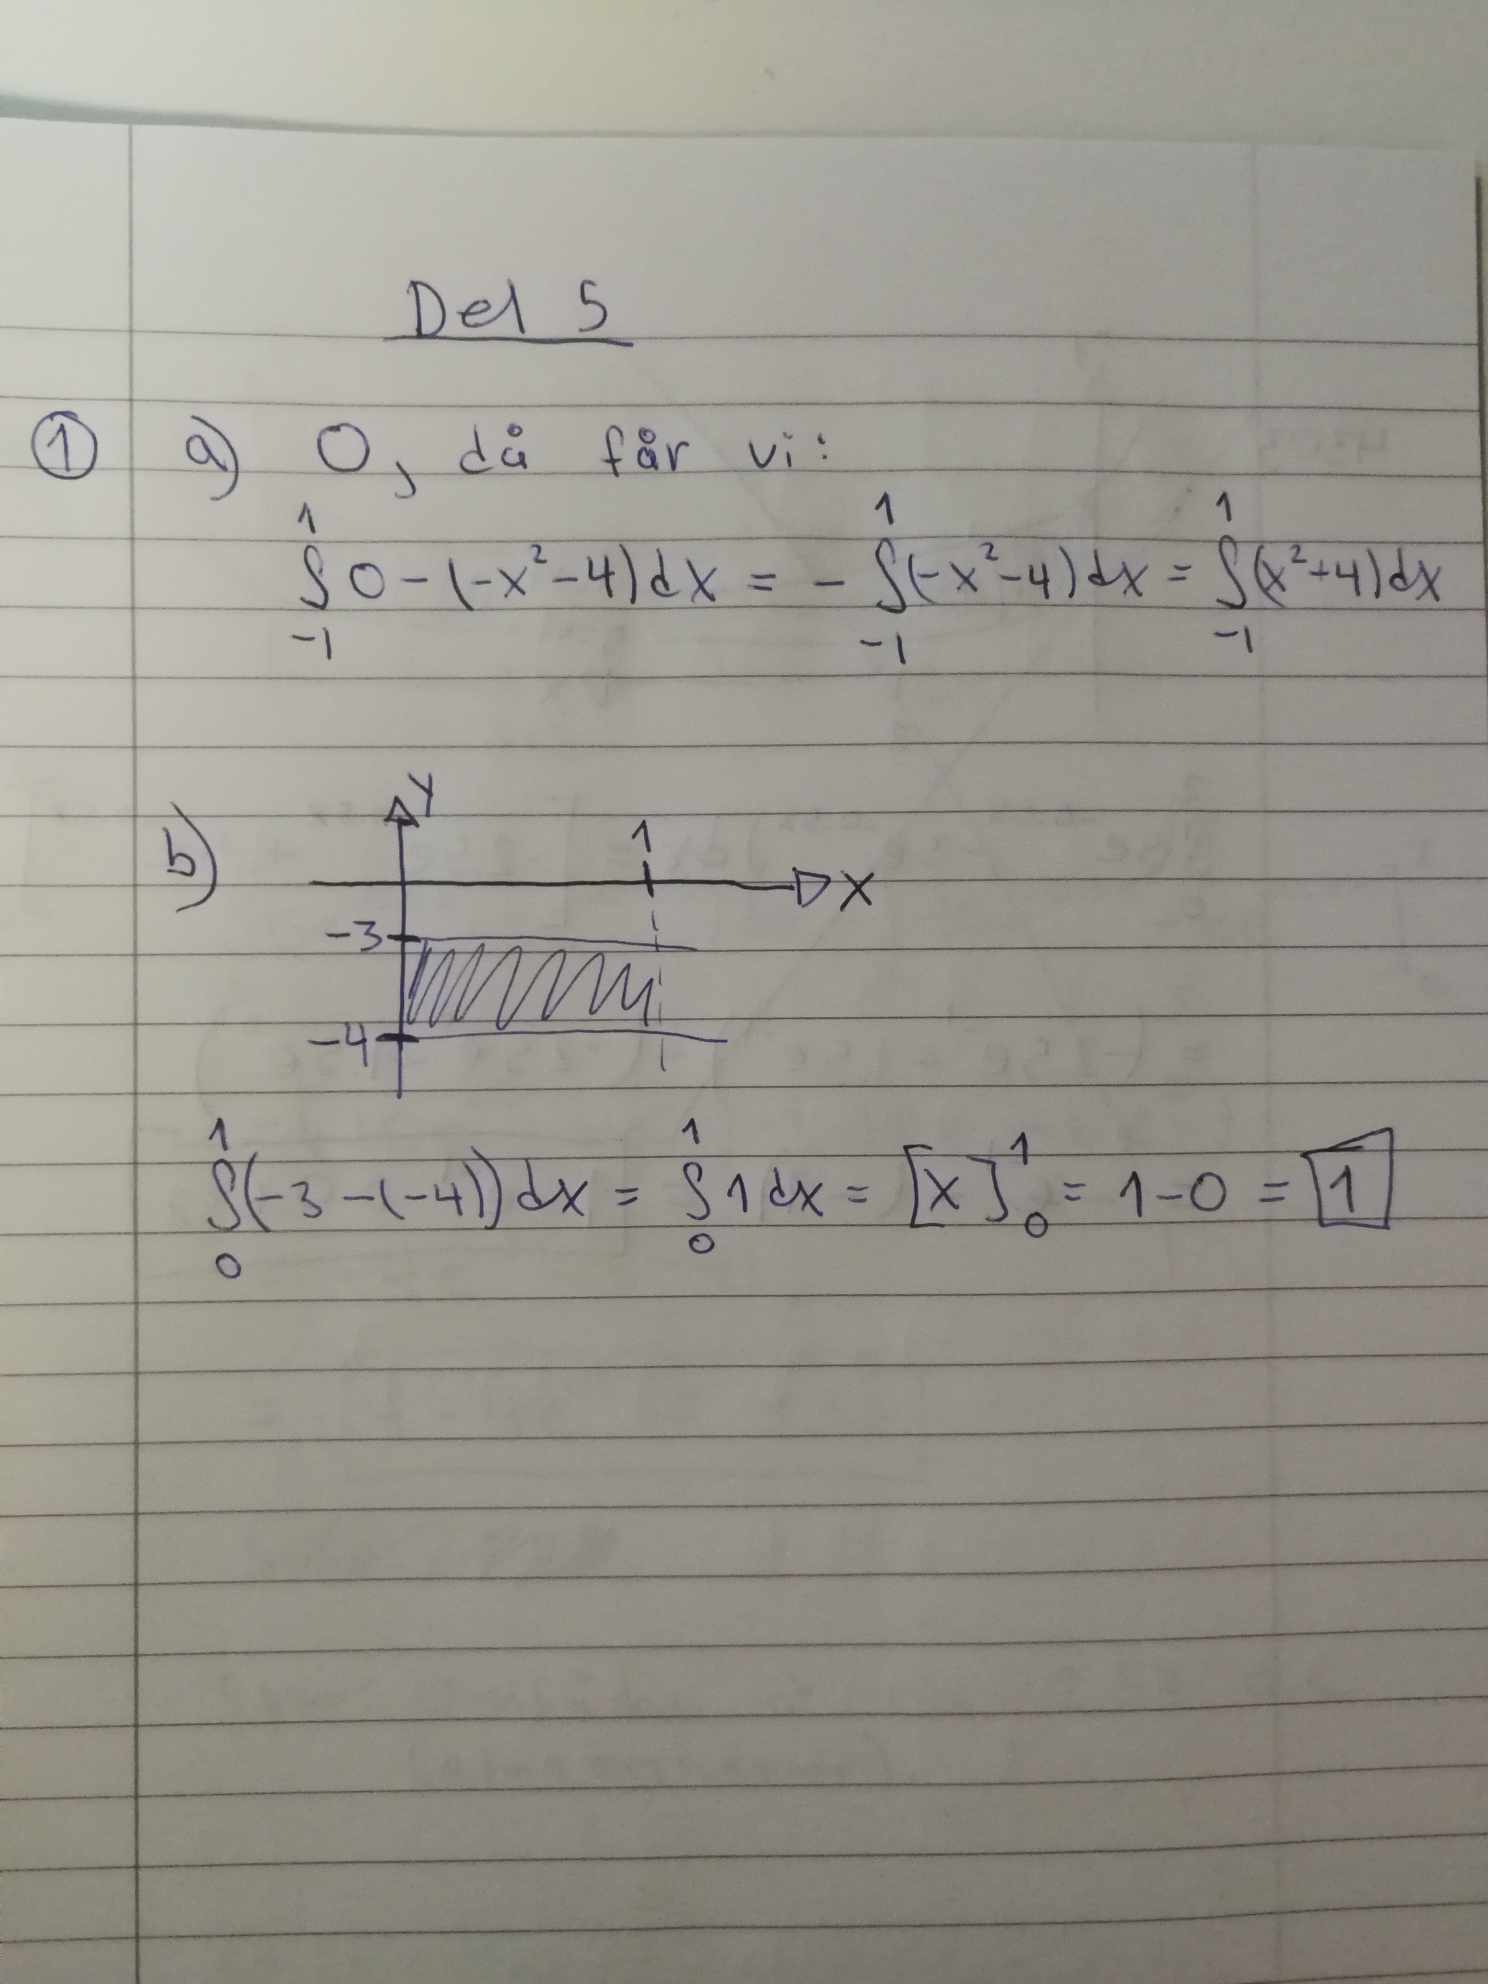 Del 5
① a) 0, då får vi:
∫₋₁¹ 0-(-x²-4)dx = -∫₋₁¹(-x²-4)dx = ∫₋₁¹(x²+4)dx
b)
y
1
x
-3
-4
∫₀¹(-3-(-4))dx = ∫₀¹ 1dx = [x]₀¹ = 1-0 = 1